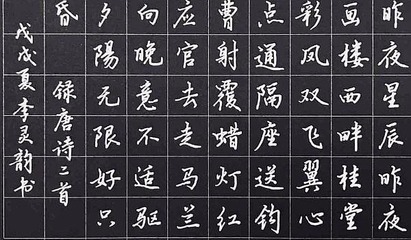 昨夜星辰昨夜
画楼西畔桂堂
彩凤双飞翼心
点通隔座送钩
曹射覆蜡灯红
应官去走马兰
向晚意不适驱
夕陽无限好只
昏
録唐诗二首
戊戌夏李灵韵书